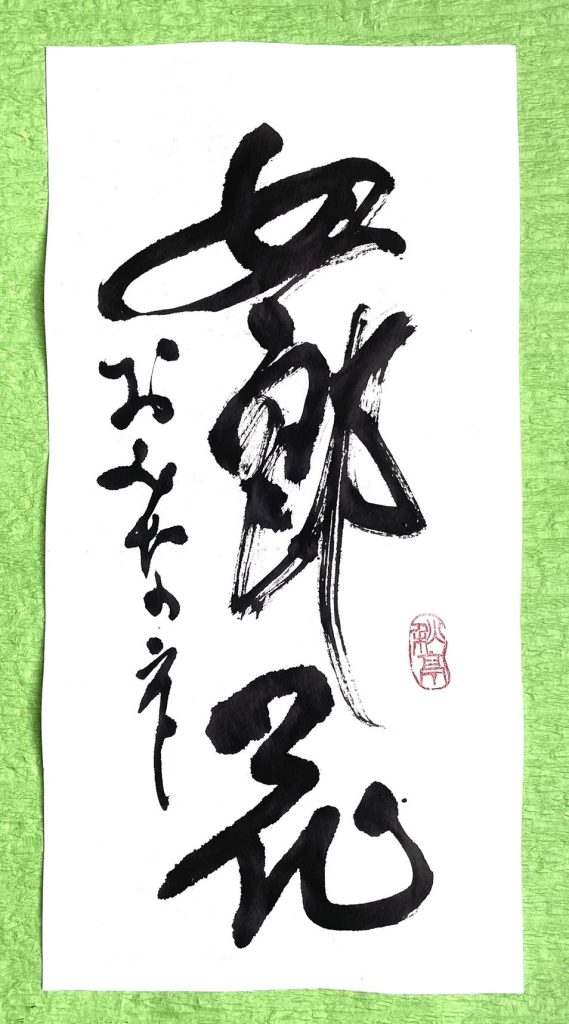 女郎花
おみなの
秋亭